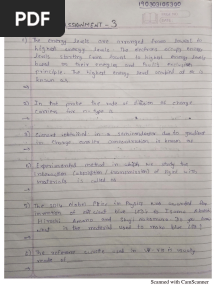 PDF
190303105390
ASSIGNMENT - 3
1) The energy levels are arranged from lowest to
highest energy levels. The electrons occupy energy
levels starting from lowest to highest energy level
based on their energies and Pauli's exclusion
principle. The highest energy level occupied at 0 K is
known as
→
2) In hot probe the rate of diffusion of charge
carriers for n-type is
→
3) Current generated in a semiconductor due to gradient
in charge carrier concentration is known as
→
4) Experimental method in which we study the
interaction (absorption / transmission) of light with
materials is called as
→
5) The 2014 Nobel Prize in Physics was awarded for
invention of efficient blue LEDs to Isamu Akasaki,
Hiroshi Amano and Shuji Nakamura. In
what is the material used to make blue LED?
→
6) The reference used in UV is usually
made of
→
Scanned with CamScanner